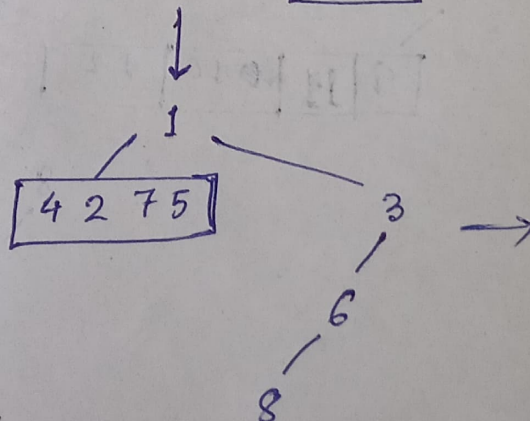 1
4 2 7 5
3
6
8